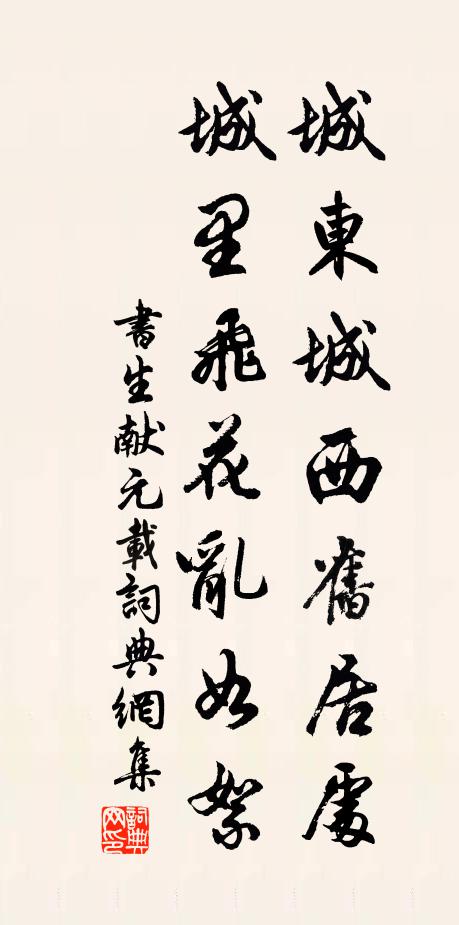 城東城西舊居處
城里飛花亂如絮
書生献元載詞典網集
詞典网印